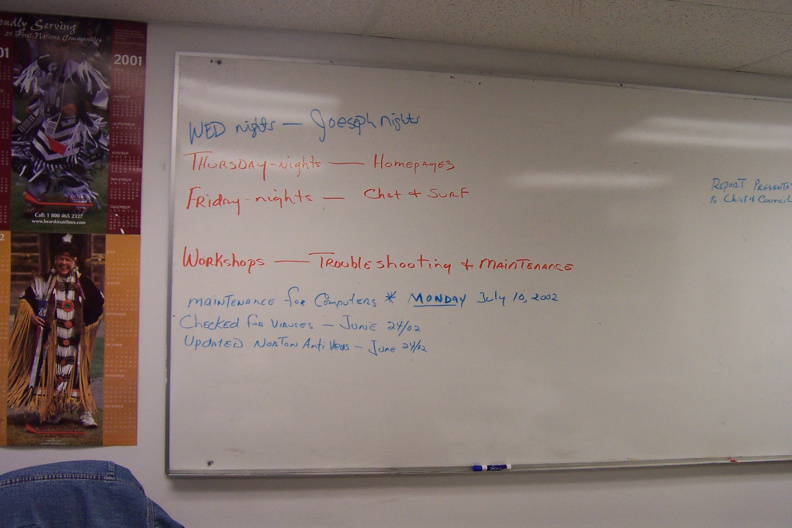 Proudly Serving
First Nations Communities
2001
Call: 1 800 465 2327
www.bearskinairlines.com
WED nights — Joesph nights
THURSDAY-Nights — Homepages
Friday-nights — Chat & SURF
Workshops — Troubleshooting & MAINTENANCE
MAINTENANCE for Computers * MONDAY July 10, 2002
Checked for Viruses — JUNE 24/02
Updated Norton Anti Virus — June 24/02
REPORT PRESENTA
to Chief & Council